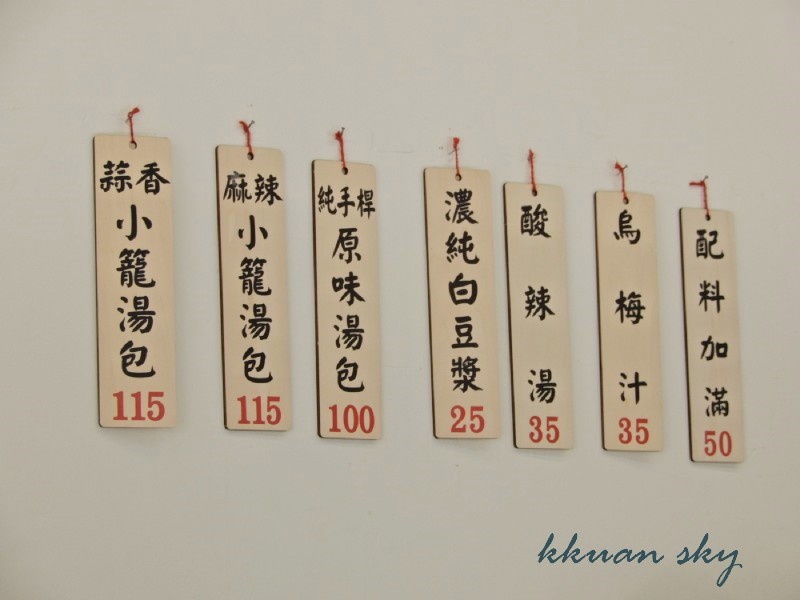 蒜香
小籠湯包
115
麻辣
小籠湯包
115
純手桿
原味湯包
100
濃純白豆漿
25
酸辣湯
35
烏梅汁
35
配料加滿
50
kkuan sky